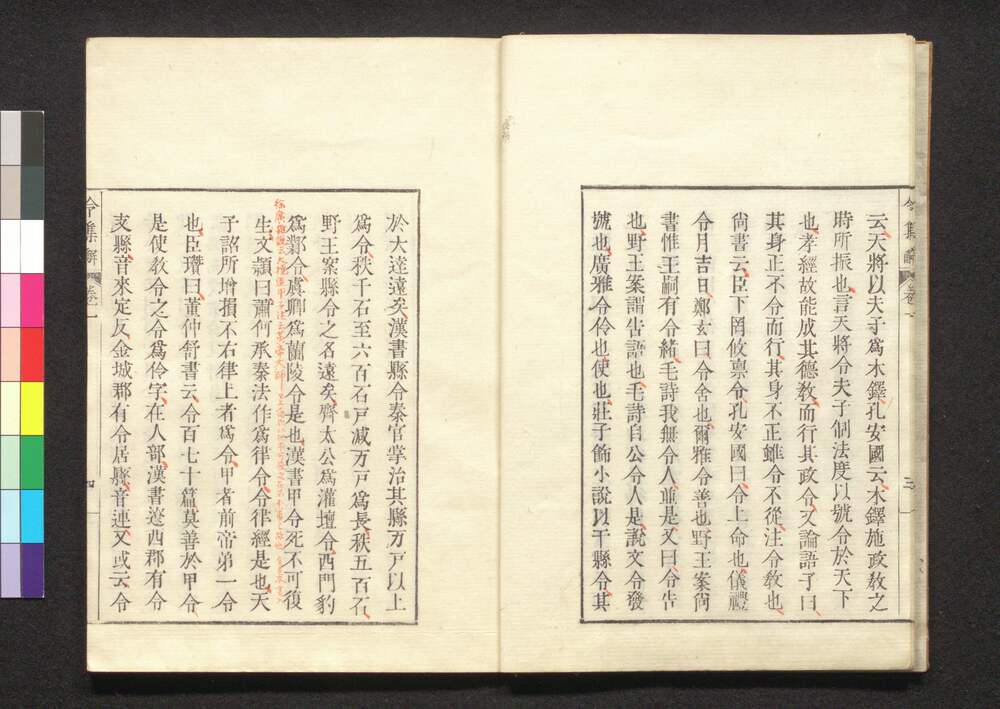 令集解 卷一 三
云天將以夫子爲木鐸孔安國云木鐸施政教之
時所振也言天將令夫子制法度以號令於天下
也孝經故能成其德教而行其政令又論語子曰
其身正不令而行其身不正雖令不從注令教也
尚書云臣下罔攸禀令孔安國曰令上命也儀禮
令月吉日鄭玄曰令舍也爾雅令善也野王案尚
書惟王嗣有令緒毛詩我無令人並是又曰令告
也野王案謂告語也毛詩自公令人是說文令發
號也廣雅令伶也使也莊子飾小說以干縣令其
於大達遠矣漢書縣令秦官掌治其縣万戸以上
爲令秩千石至六百石戸減万戸爲長秩五百石
野王案縣令之名遠矣齊太公爲灌壇令西門豹
爲鄴令虞卿爲蘭陵令是也漢書甲令死不可復
生文穎曰蕭何承秦法作爲律令令律經是也天
子詔所增損不右律上者爲令甲者前帝第一令
也臣瓚曰董仲舒書云令百七十篇莫善於甲令
是使教令之令爲伶字在人部漢書遼西郡有令
支縣音來定反金城郡有令居縣音連又或云令
令集解 卷一 四